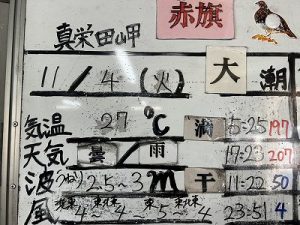 赤旗
真栄田岬
11/4(火) 大潮
気温 27℃ 満 5:25 197
天気 曇/雨 17:23 207
波 うねり 2.5~3m 干 11:22 50
風 北東4~東北東4~東5~東北東4 23:51 4